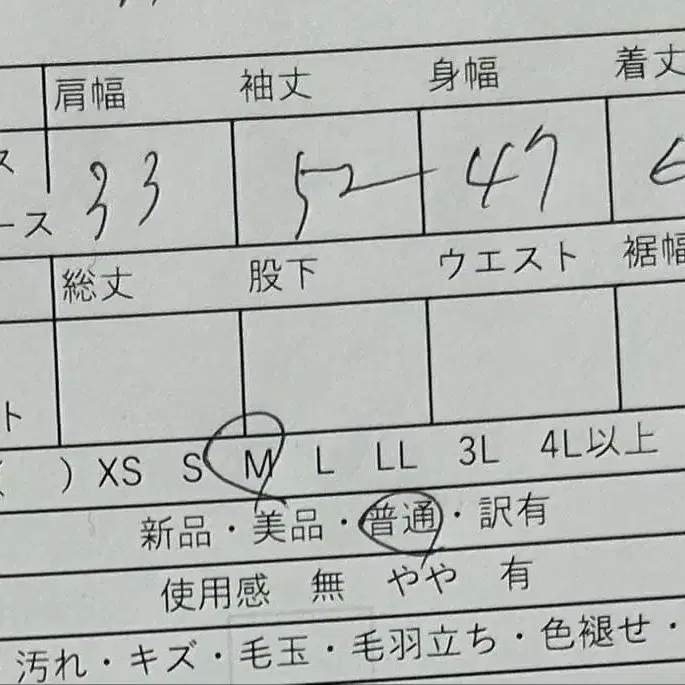 肩幅 袖丈 身幅 着丈
ス
ース 33 52 47
総丈 股下 ウエスト 裾幅
ト
( ) XS S M L LL 3L 4L以上
新品・美品・普通・訳有
使用感 無 やや 有
汚れ・キズ・毛玉・毛羽立ち・色褪せ・